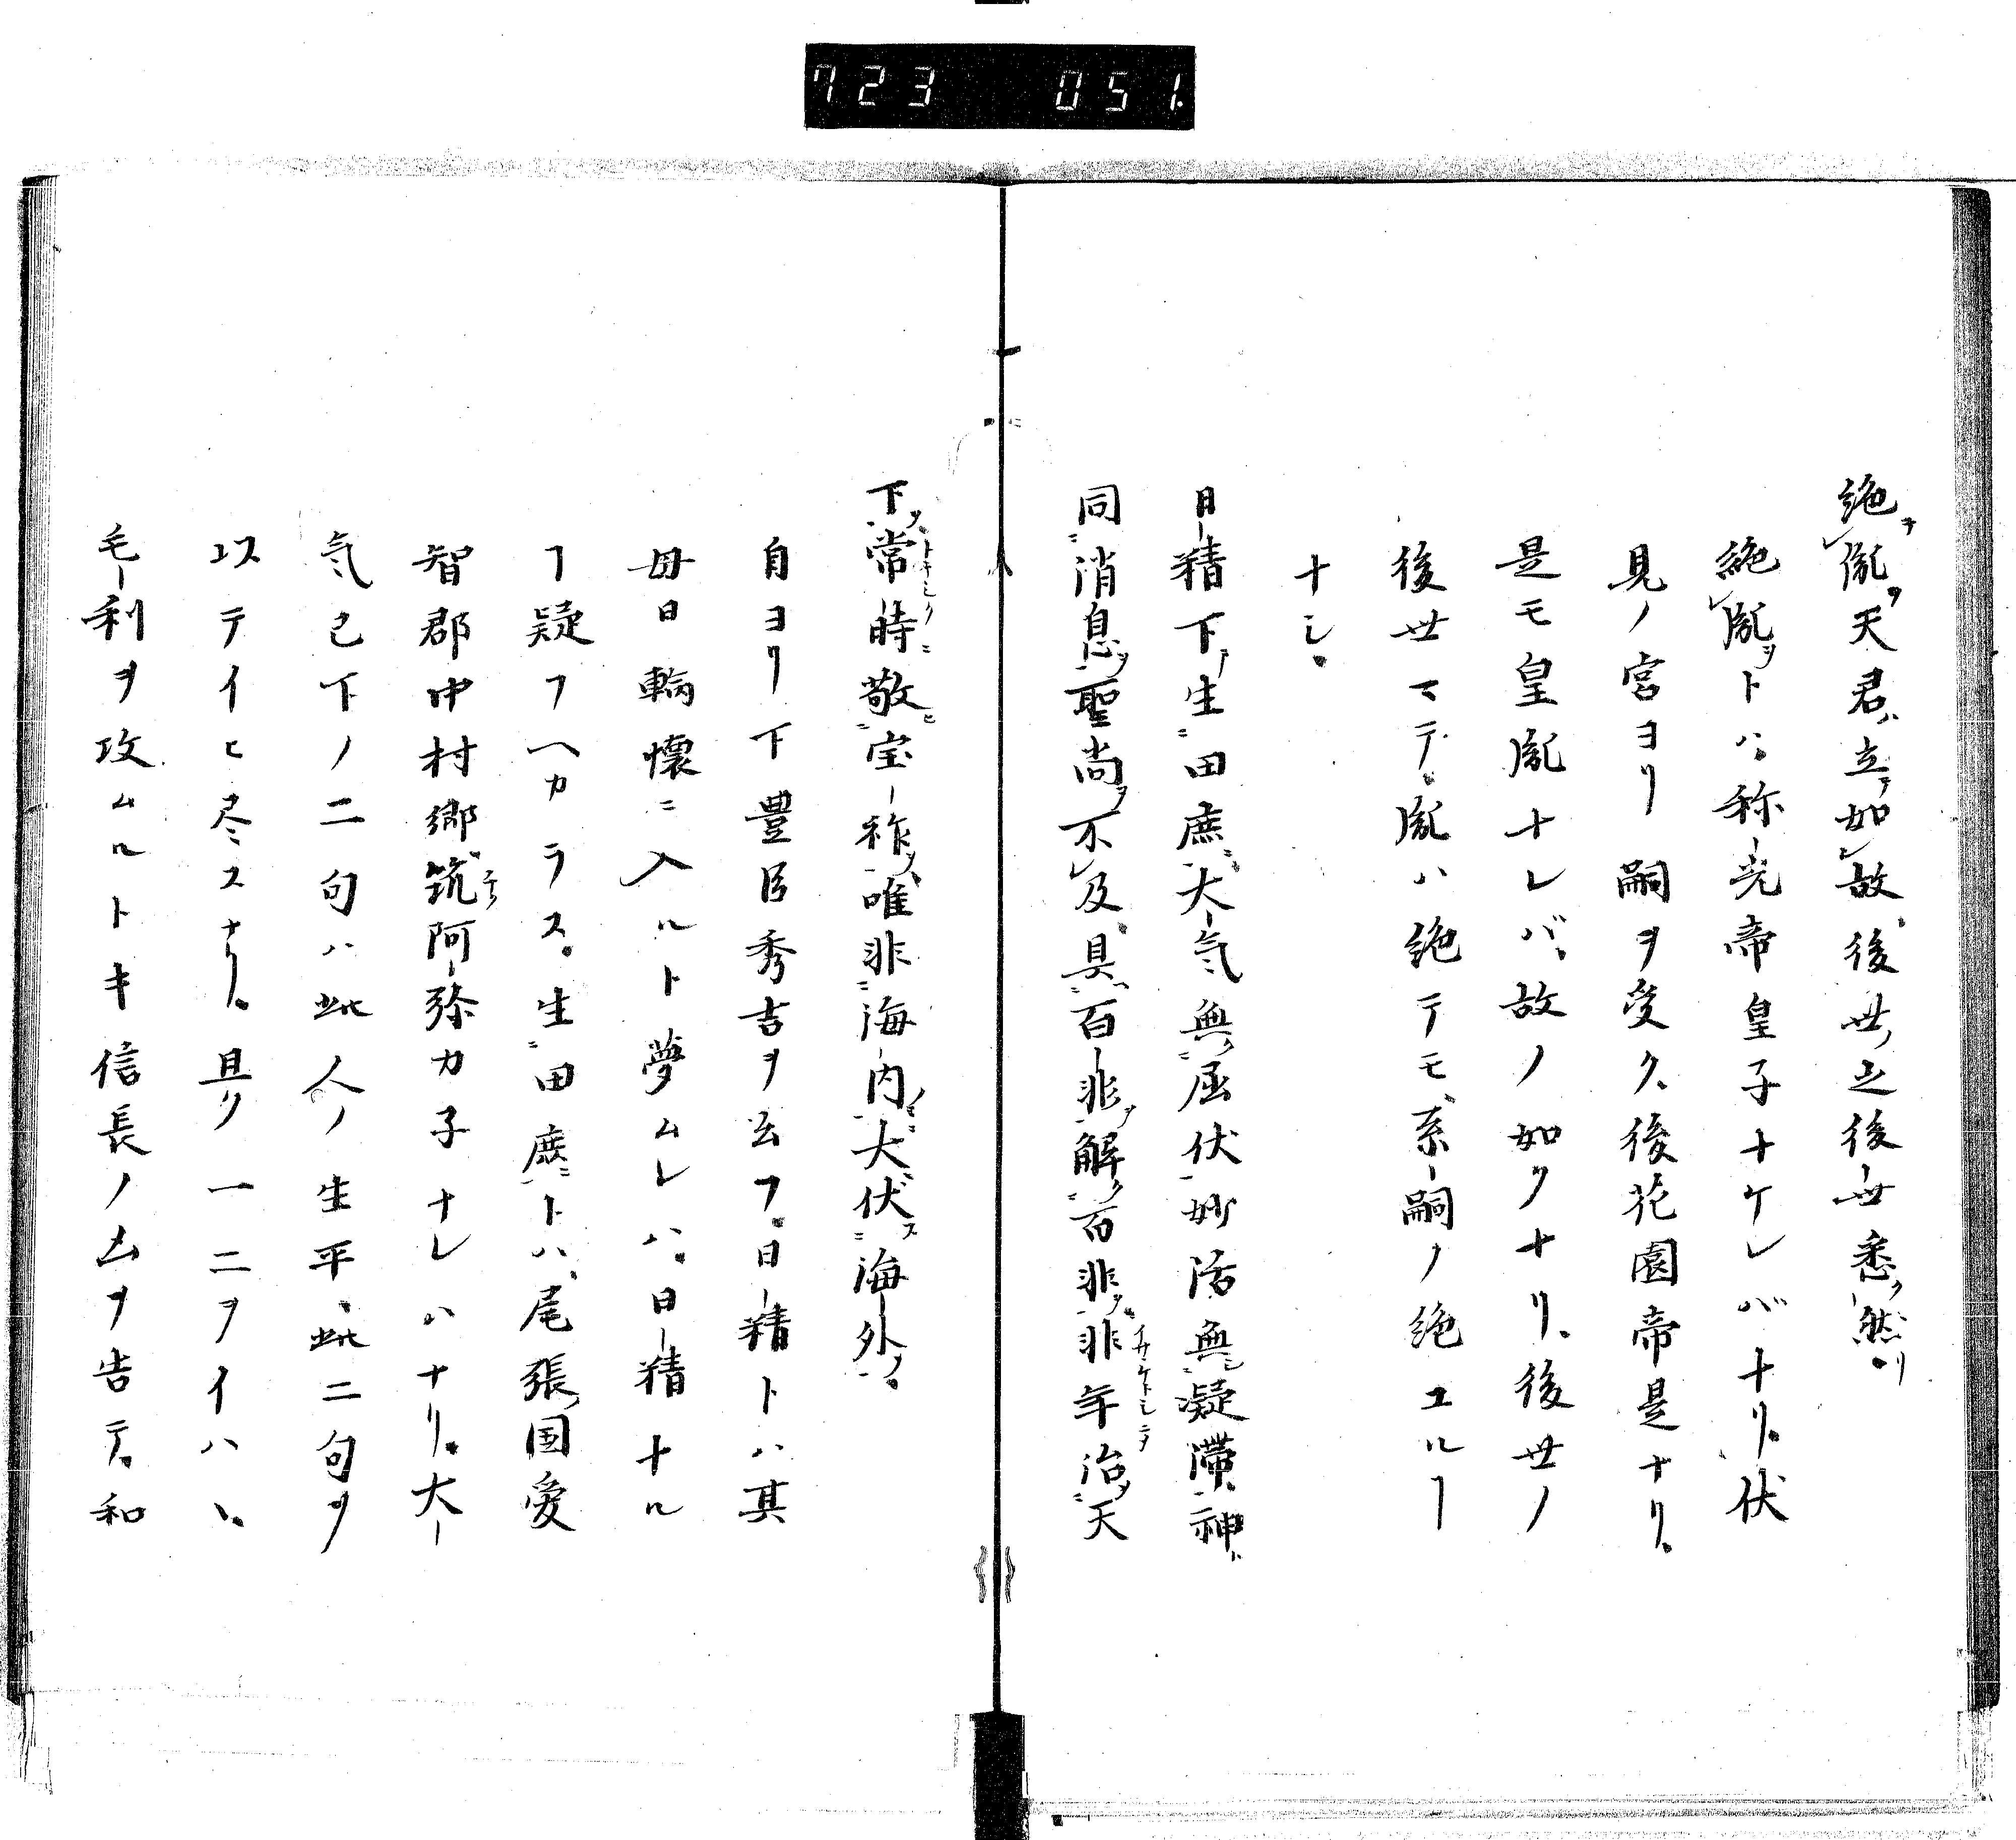 723 051.
絶胤天君立如故後世之後世悉然
絶胤ヲトハ称光帝皇子ナケレバナリ伏
見ノ宮ヨリ嗣ヲ受ク後花園帝是ナリ
是モ皇胤ナレバ故ノ如クナリ後世ノ
後世マテ胤ハ絶テモ系嗣ノ絶ユルヿ
ナシ
日精下生田庶大気無屈伏妙活無凝滞神
同消息聖尚不及具百非解百非非年治天
下常時敬宝祚唯非海内大伏海外
自ヨリ下豊臣秀吉ヲ云フ日精トハ其
母日輪懐ニ入ルト夢ムレハ日精ナル
ヿ疑フヘカラス生田庶トハ尾張国愛
智郡中村郷筑阿弥カ子ナレハナリ大
気已下ノ二句ハ此人ノ生平此二句ヲ
以テイヒ尽スナリ具ク一二ヲイハヽ
毛利ヲ攻ムルトキ信長ノ凶ヲ告テ和